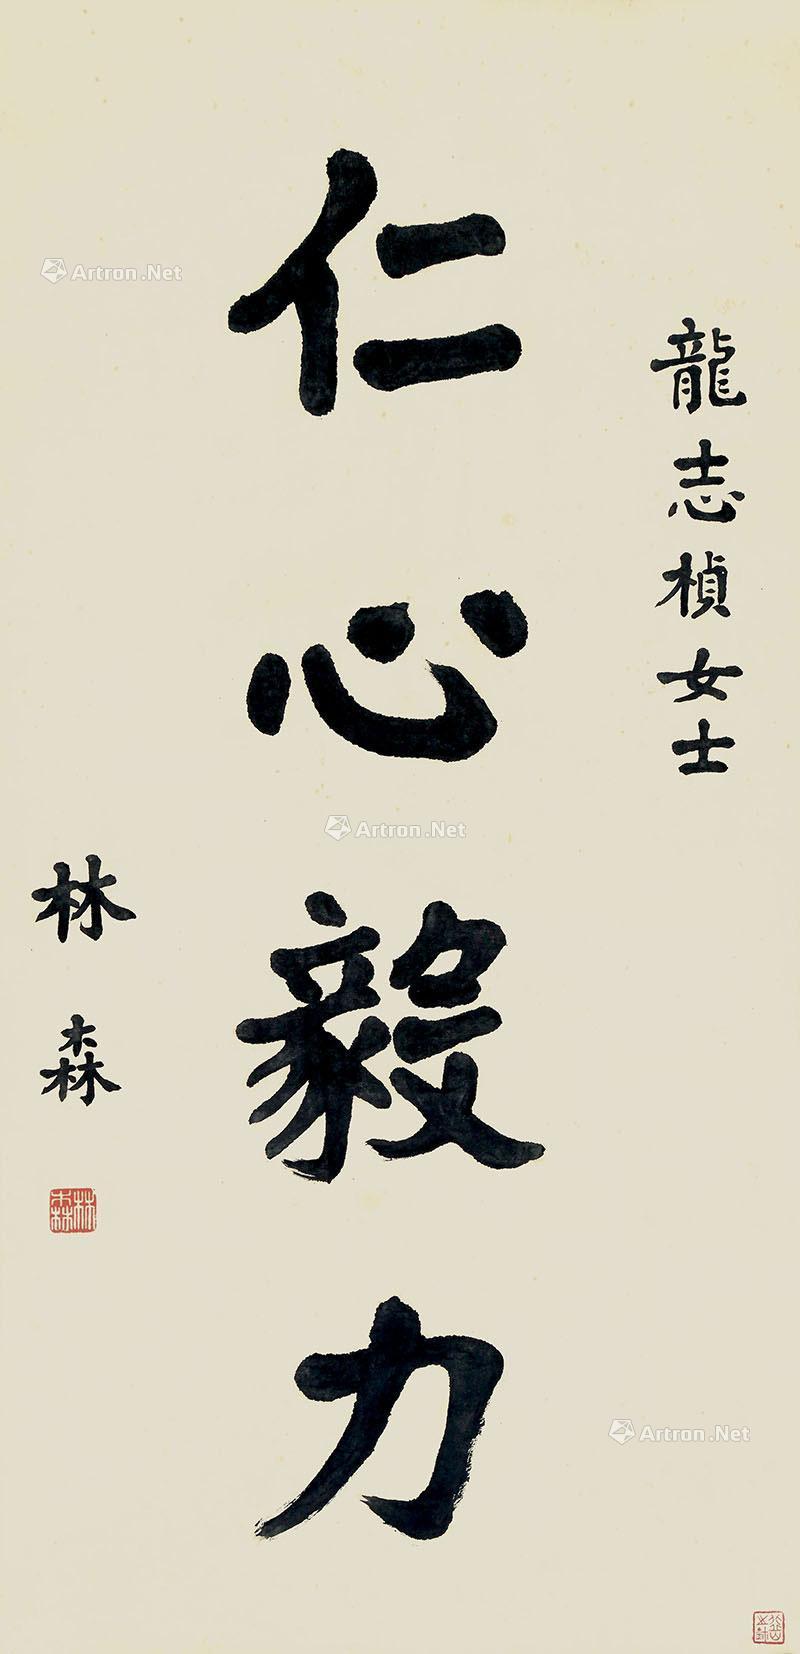 龍志楨女士
仁心毅力
林森
林森
Artron.Net
Artron.Net
Artron.Net
Artron.Net